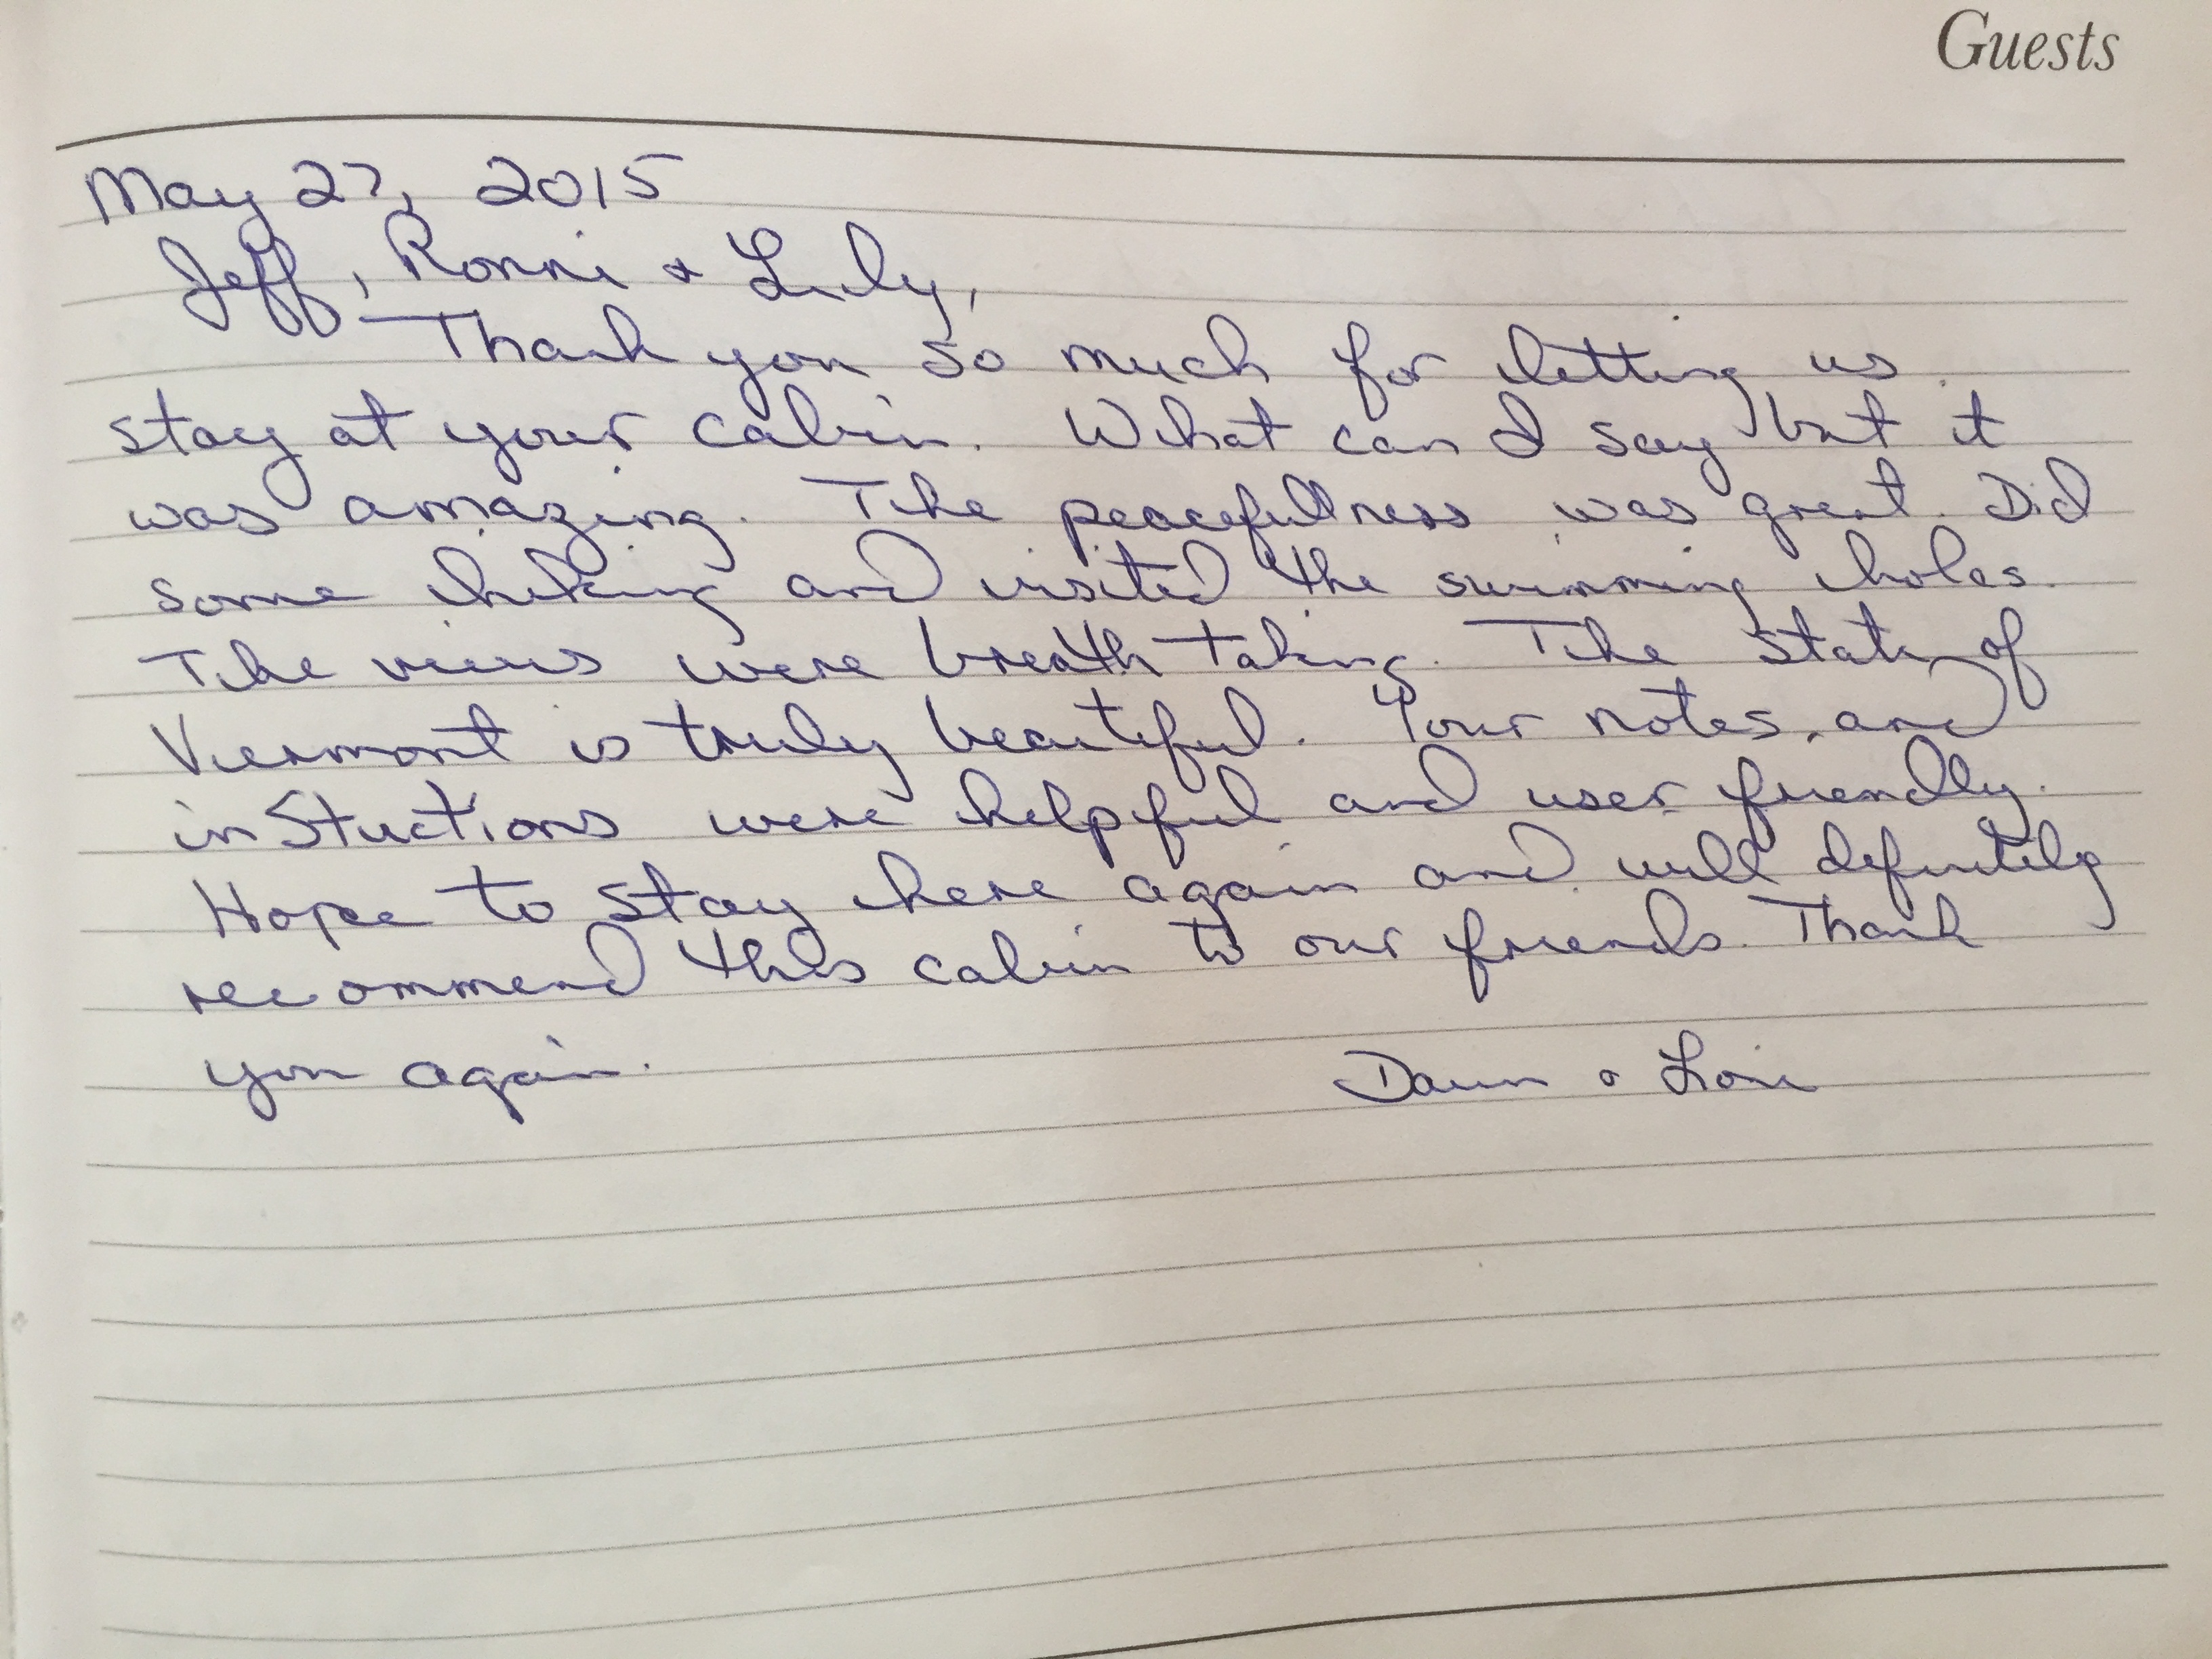 Guests
May 27, 2015
Jeff, Ronni & Lily,
Thank you so much for letting us
stay at your cabin. What can I say but it
was amazing. The peacefullness was great. Did
some hiking and visited the swimming holes.
The views were breath taking. The State of
Vermont is truly beautiful. Your notes, and
inStuctions were helpful and user friendly.
Hope to stay here again and will definitely
recommend this cabin to our friends. Thank
you again.
Dawn & Lori